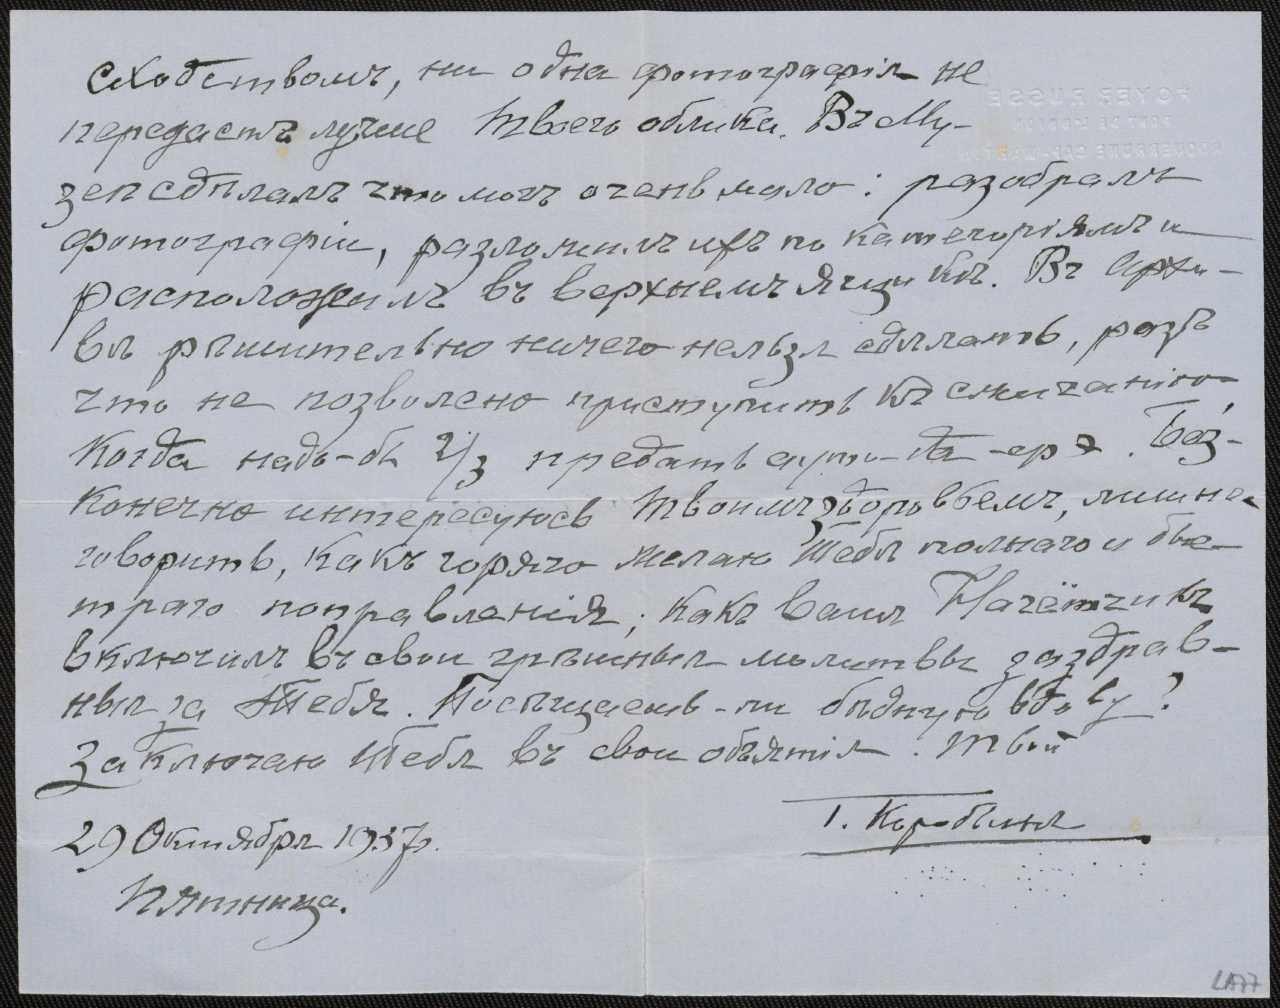 сходствомъ, ни одна фотографія не
передастъ лучше Твоего облика. Въ Му-
зеѣ сдѣлалъ что могъ очень мало: разобралъ
фотографіи, разложилъ ихъ по категоріямъ и
расположилъ въ верхнемъ ящикѣ. Въ Архи-
вѣ рѣшительно ничего нельзя сдѣлать, разъ
что не позволено приступить къ сжиганію
когда надо-бы 2/3 предать ауто-да-фэ. Без-
конечно интересуюсь Твоимъ здоровьемъ, лишне
говорить, какъ горячо желаю Тебѣ полнаго и быс-
траго поправленія; какъ Вашъ Начётчикъ
включилъ въ свои грѣшныя молитвы заздрав-
ныя за Тебя. Посѣщаешь-ли бѣдную вдову?
Заключаю Тебя въ свои объятія. Твой
Г. Коробьинъ
29 Октября 1937г.
Пятница.
FOYER RUSSE
LA77